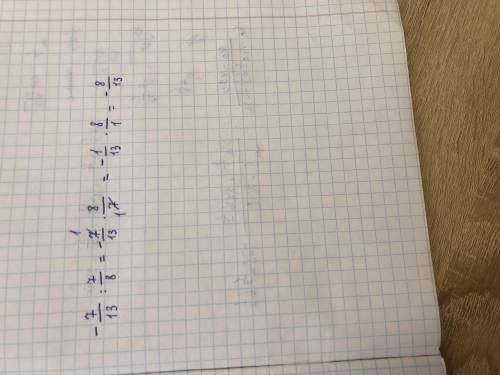 - 7/13 : 7/8 = - 7/13 · 8/7 = - 1/13 · 8/1 = - 8/13